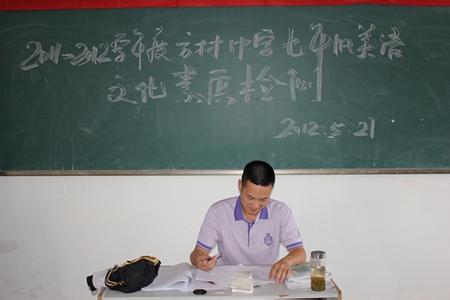 2011-2012学年度方村中学七年级英语
文化素质检测
2012.5.21